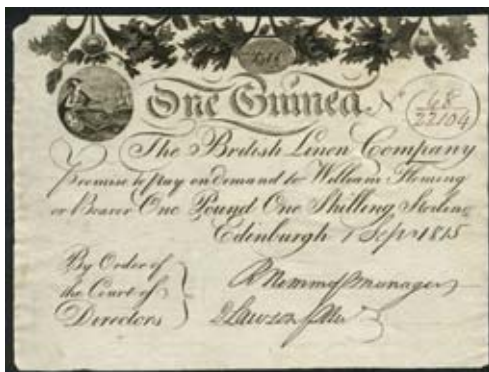 One Guinea No 48
22104
The British Linen Company
Promise to pay on demand to William Fleming
or Bearer One Pound One Shilling Sterling
Edinburgh 1 Sepr 1815
By Order of
the Court of
Directors
Manager